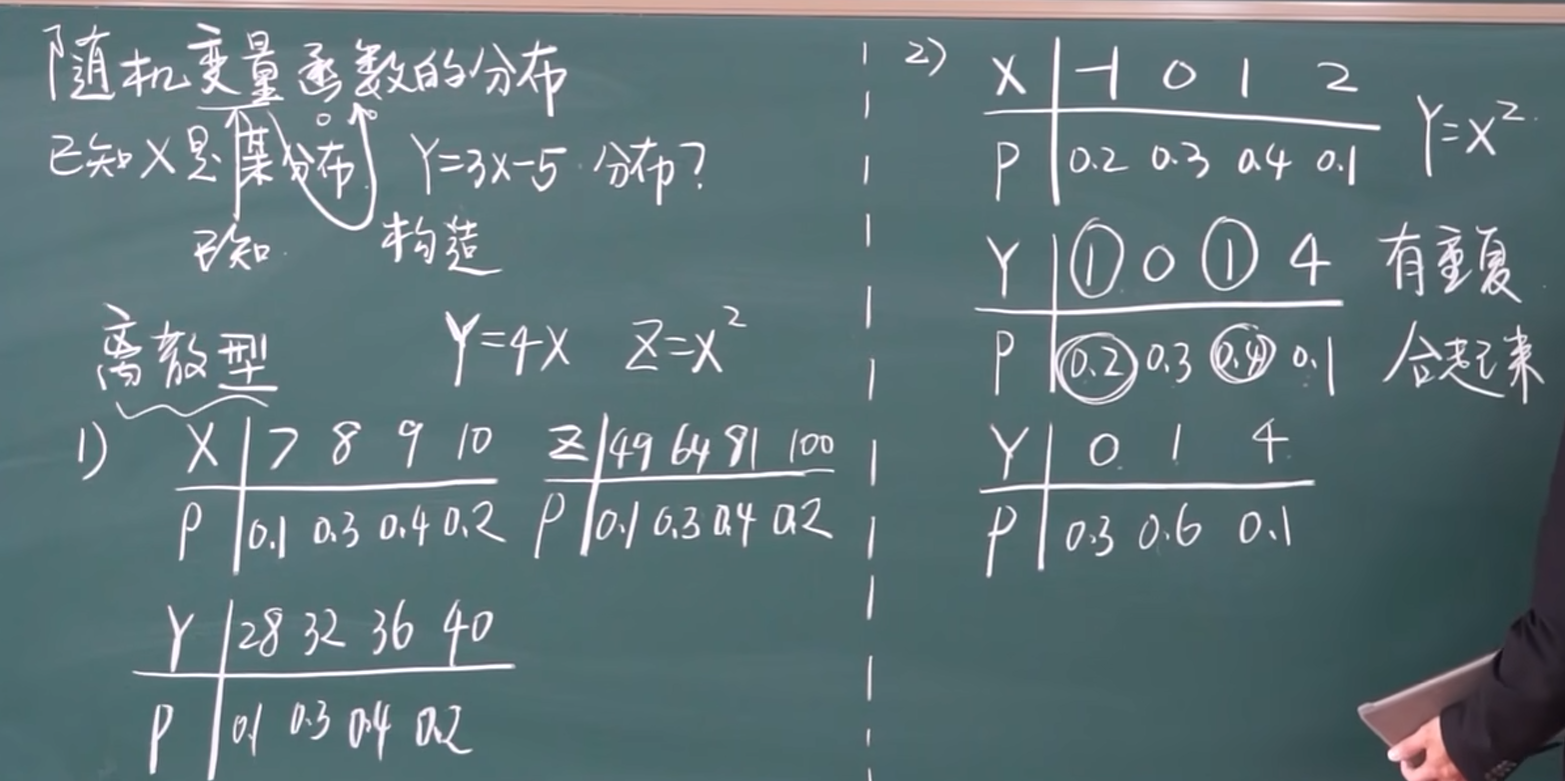 随机变量函数的分布
已知X是某分布 Y=3X-5 分布?
已知 构造
离散型 Y=4X Z=X²
1) X | 7 8 9 10
P | 0.1 0.3 0.4 0.2
Z | 49 64 81 100
P | 0.1 0.3 0.4 0.2
Y | 28 32 36 40
P | 0.1 0.3 0.4 0.2
2) X | -1 0 1 2
P | 0.2 0.3 0.4 0.1
Y=X²
Y | 1 0 1 4 有重复
P | 0.2 0.3 0.4 0.1 合起来
Y | 0 1 4
P | 0.3 0.6 0.1